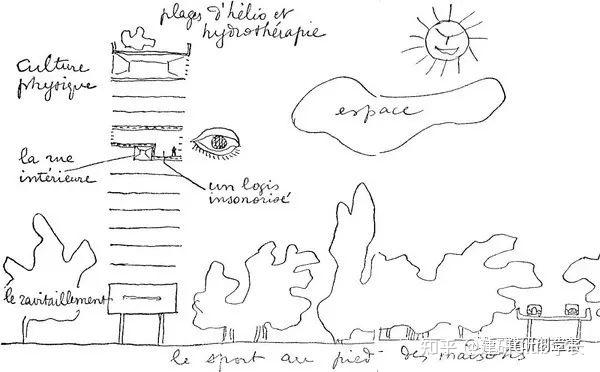 plages d'hélio et
hydrothérapie
culture
physique
espace
la rue
intérieure
un logis
insonorisé
le ravitaillement
le sport au pied des maisons
知乎